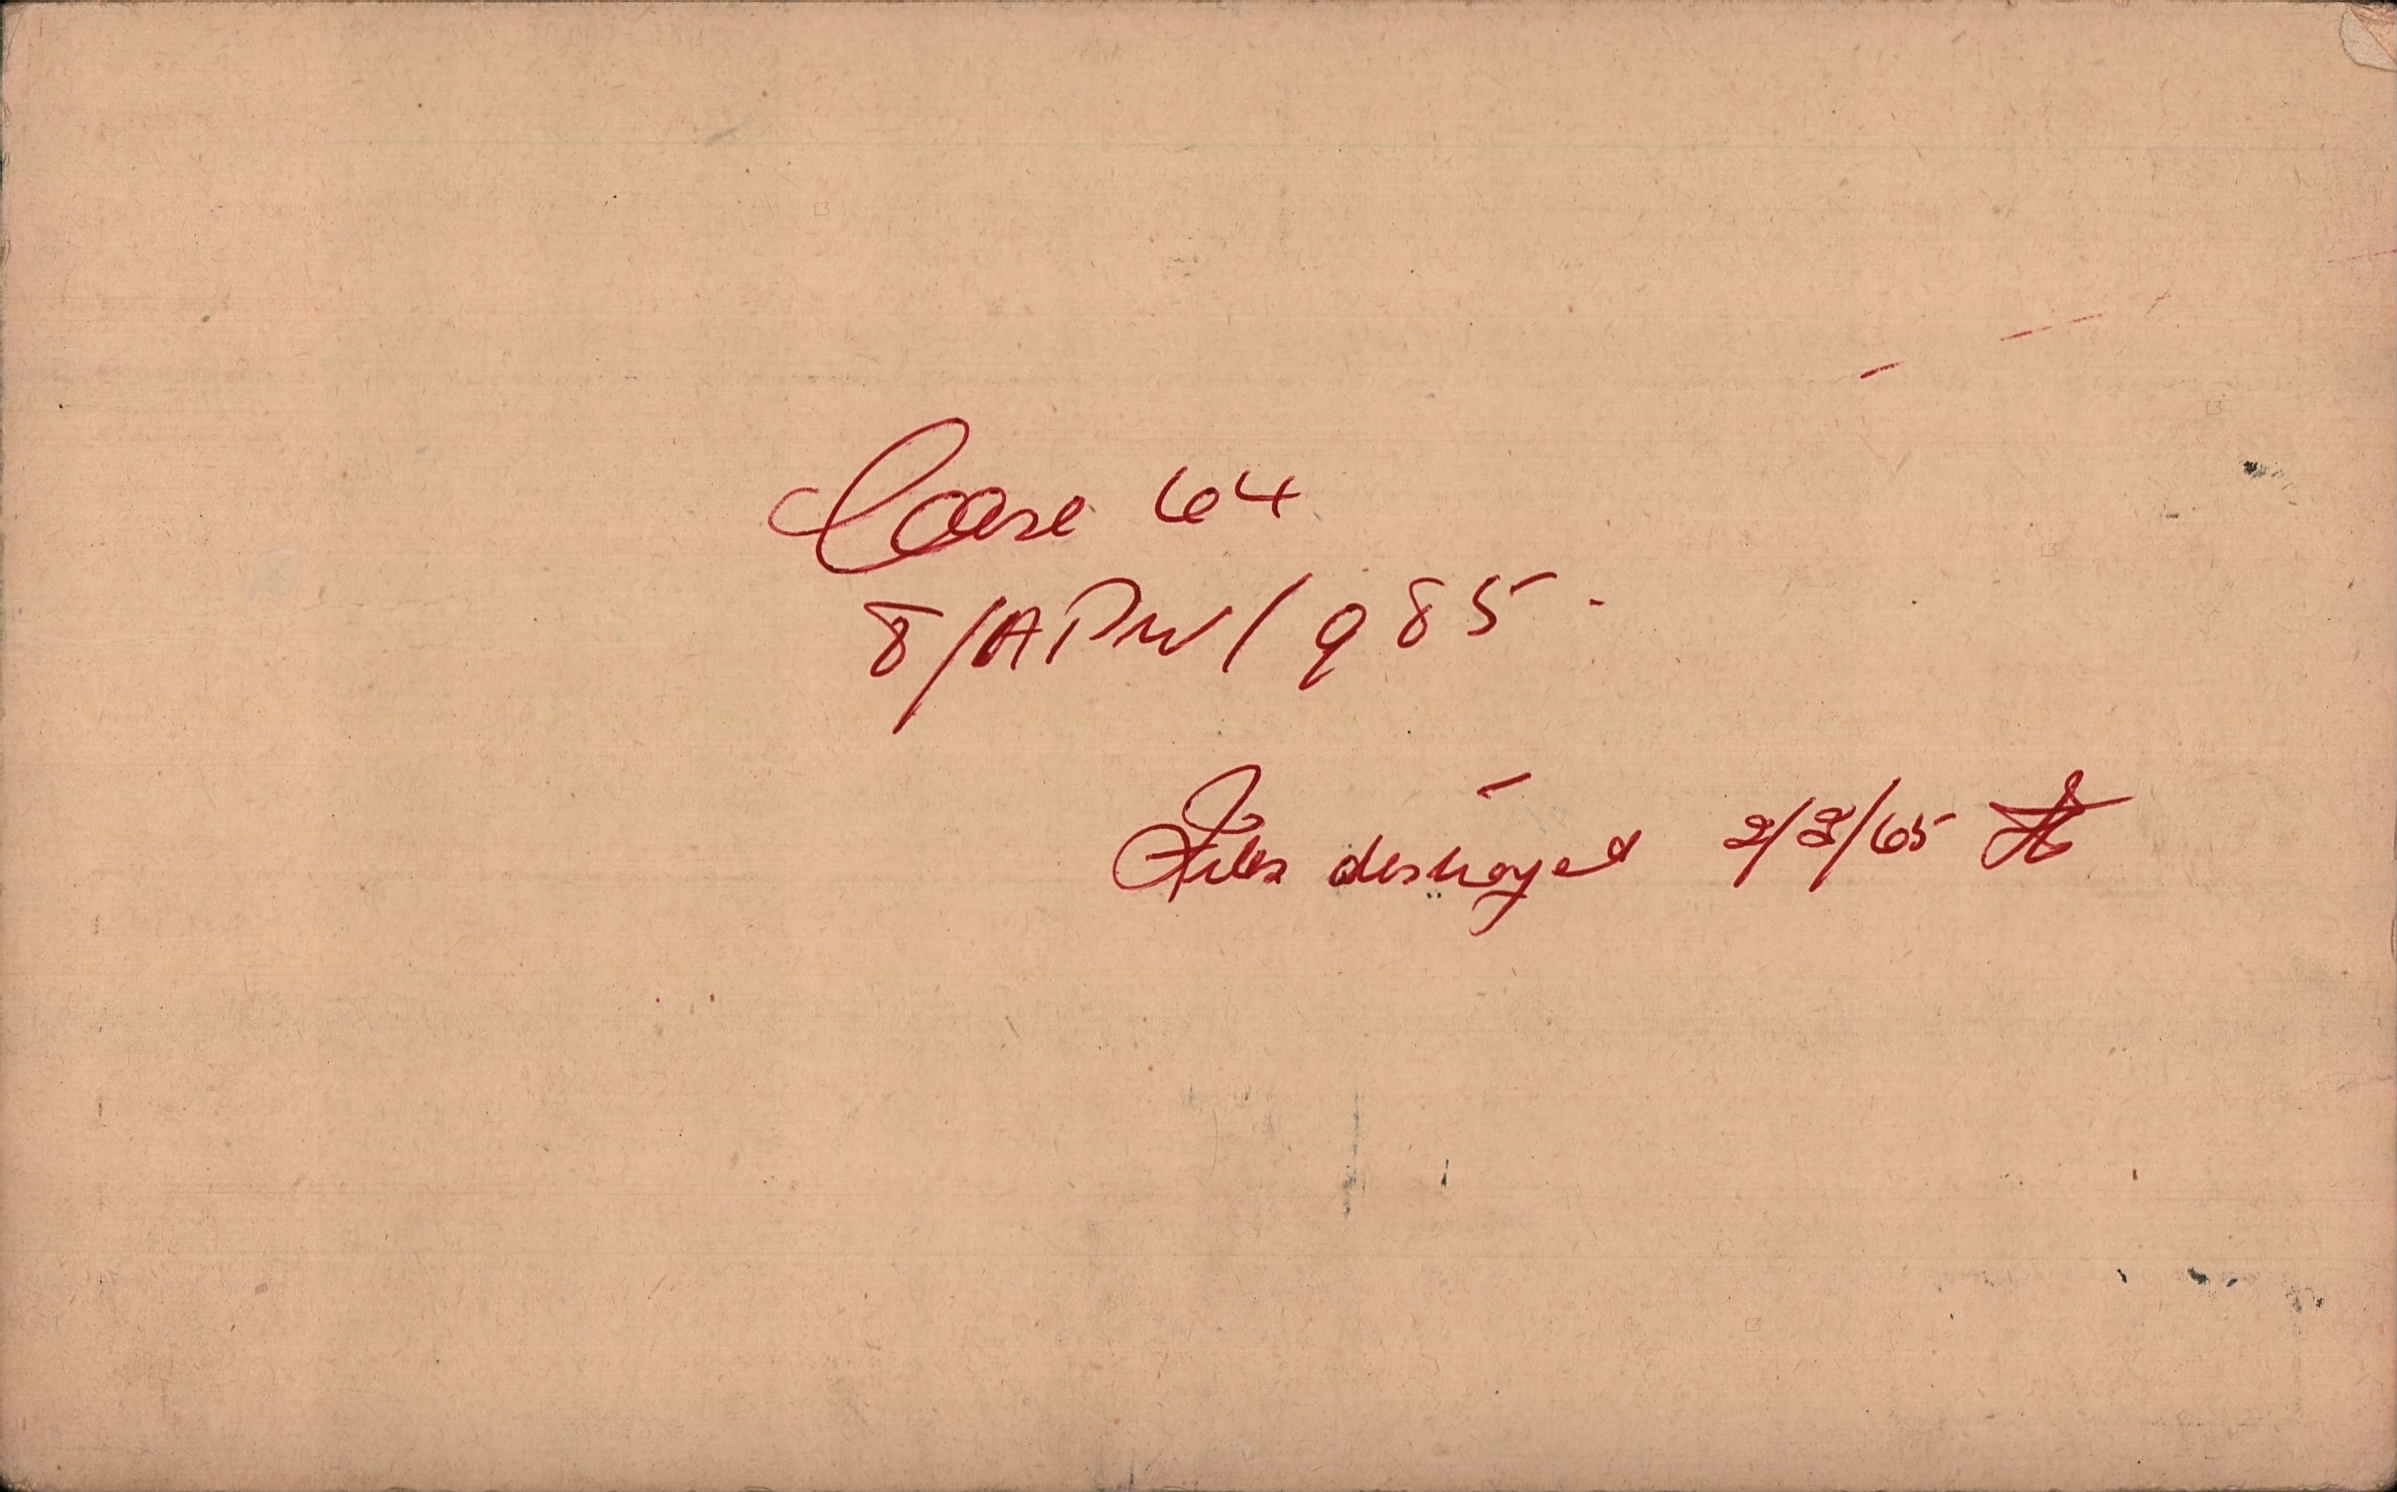 Case 64
8/APW/985.
Files destroyed 2/3/65